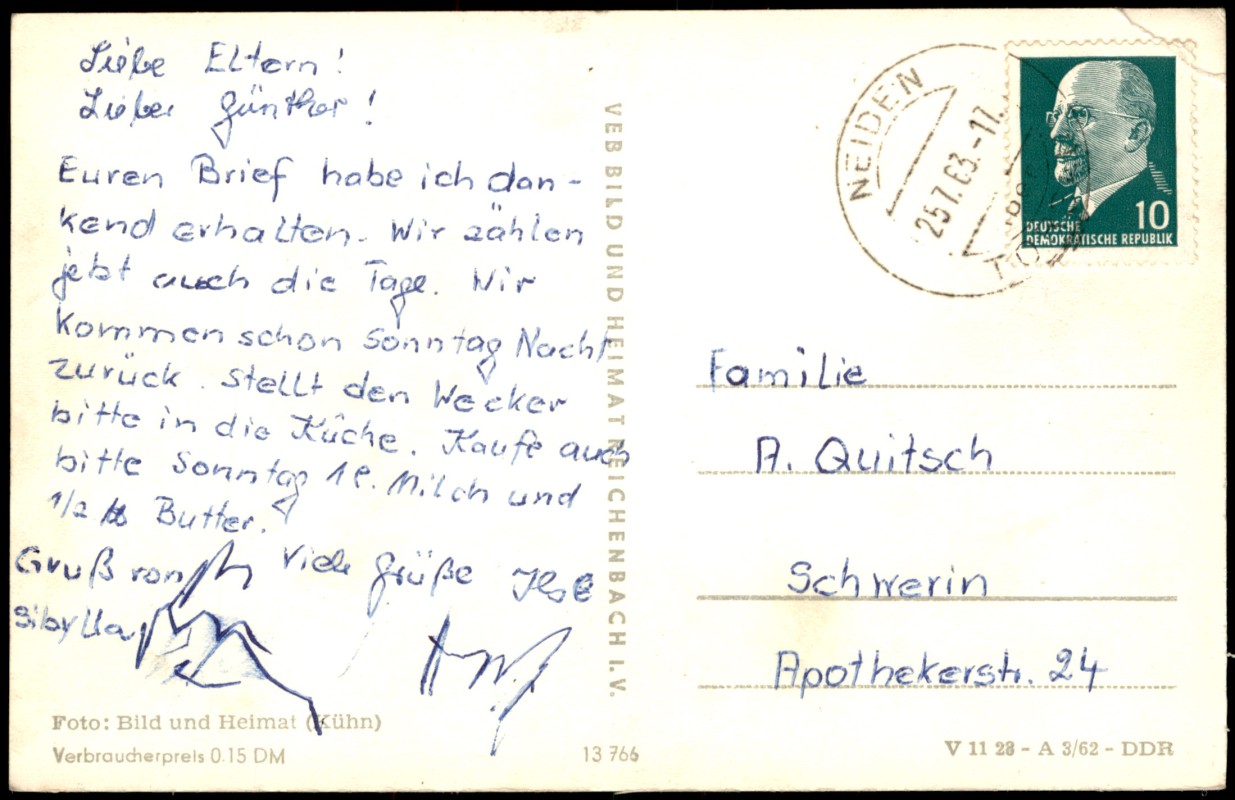 Liebe Eltern!
Lieber Günther!
Euren Brief habe ich dan-
kend erhalten. Wir zählen
jetzt auch die Tage. Wir
kommen schon Sonntag Nacht
zurück. Stellt den Wecker
bitte in die Küche. Kaufe auch
bitte Sonntag 1 l. Milch und
1/2 Butter.
Gruß von
Sibylla
Viele Grüße Ilse
Foto: Bild und Heimat (Kühn)
Verbraucherpreis 0.15 DM
13 766
VEB BILD UND HEIMAT REICHENBACH I. V.
NEIDEN
25.7.63.-17
DEUTSCHE
DEMOKRATISCHE REPUBLIK
10
Familie
A. Quitsch
Schwerin
Apothekerstr. 24
V 11 28 - A 3/62 - DDR